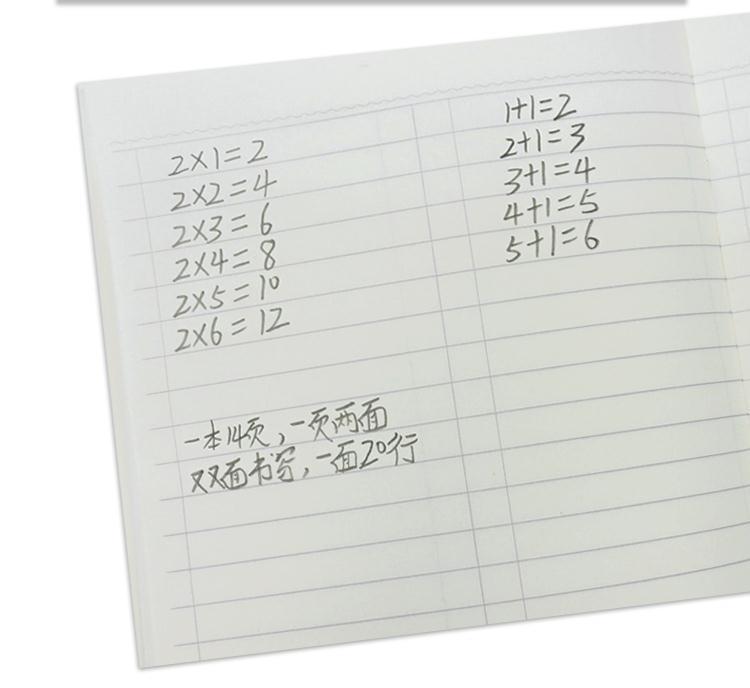 2×1=2
2×2=4
2×3=6
2×4=8
2×5=10
2×6=12
一本14页,一页两面
双面书写,一面20行
1+1=2
2+1=3
3+1=4
4+1=5
5+1=6